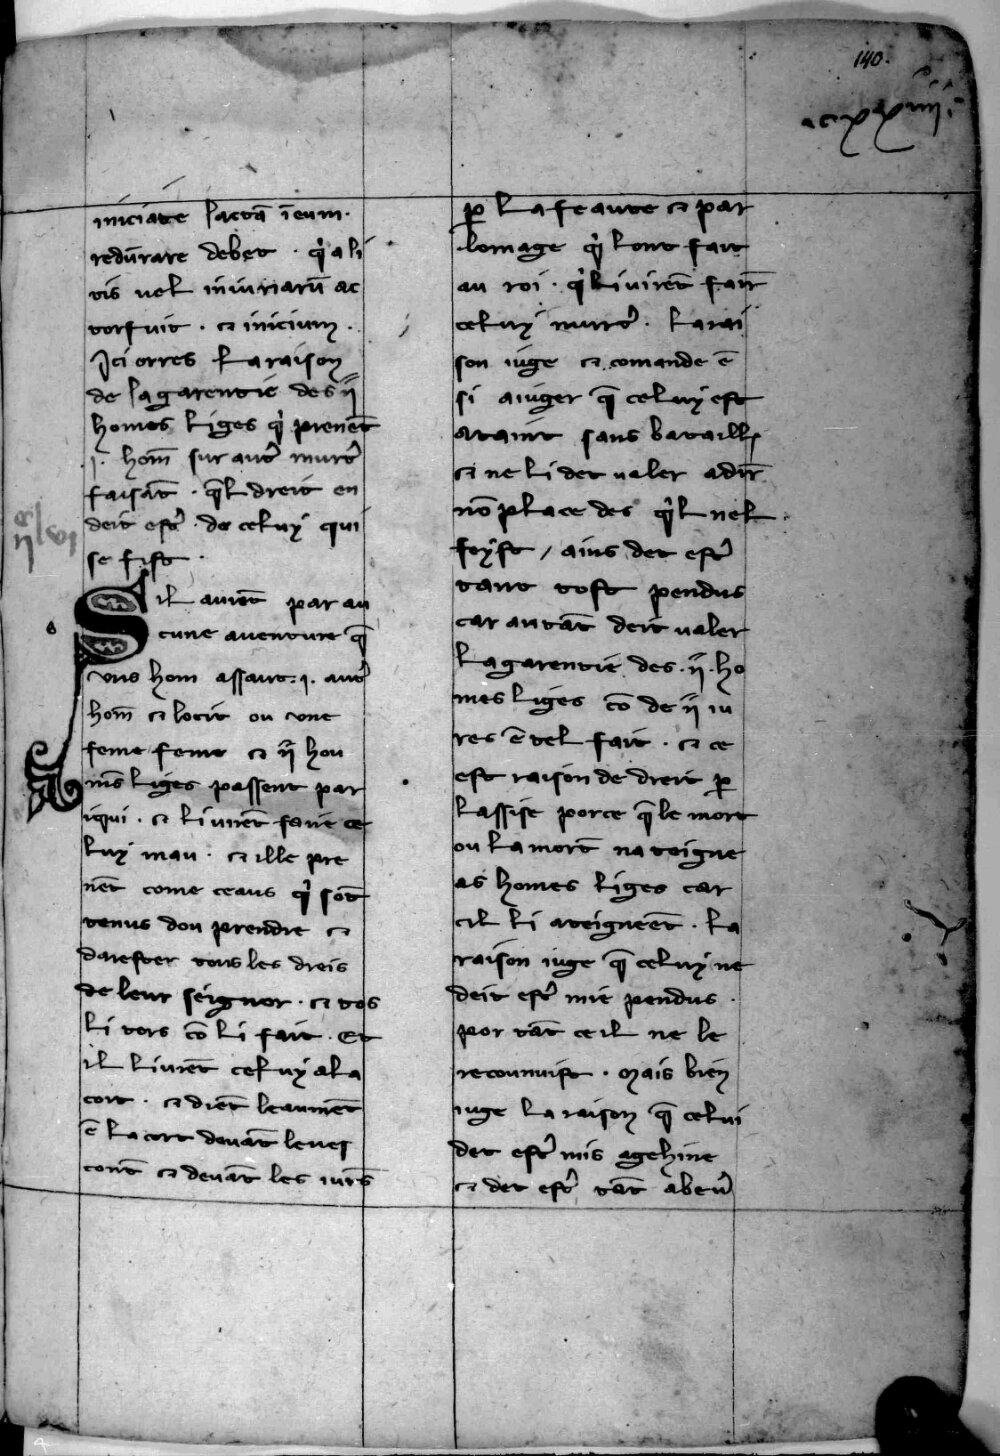 140.
iniciate lactā ī eum.
redūdare debet . q̉ a li
tis uel iniuriarū ac
tor fuit . ⁊ inicium .
Ici orres la raison
de la garentie des ii
homes liges q̉ prenēt
.i. hom̄ sur aut̉ murt̉
faisāt . q̄l dreit en
deit est̉ . de celuy qui
se fist .
Sil auient par au
cune auenture q̄
vns hom assaut .i. aut̉
hom̄ ⁊ locit ou vne
feme feme ⁊ ii hou
mēs liges passent par
iqui . ⁊ li virēt faire ce
luy mau . ⁊ ille pre
nēt come ceaus q̉ sōt
tenus dou prendre ⁊
darester tous les dreis
de leur seignor . ⁊ tos
li tors cō li fait . Et
il liurēt celuy a la
cort . ⁊ diēt leaumēt
ē la cort deuāt le ues
conte ⁊ deuāt les iurēs
p̱ la feaute ⁊ par
lomage q̉l ont fait
au roi . q̉l li virēt fair̄
celuy murt̉ . La rai
son iuge ⁊ comande ē
si a iuger q̄ celuy est
ataint sans bataille
⁊ ne li det ualer a dir̄
nō place des q̉l nel
feyst / ains det est̉
tant tost pendus
car autāt deit ualer
la garentie des .ii. ho
mes liges cō de ii iu
res ē tel fait . ⁊ ce
est raison de dreit p̱
lassise porce q̄ le mort
ou la mort na teigne
as homes liges car
cil li ateigneēt . La
raison iuge q̄ celuy ne
deit est̉ mie pendus .
por tāt ce il ne le
reconnuist . Mais bien
iuge la raison q̄ celui
det est̉ mis a gehine
⁊ det est̉ tāt abeur̉